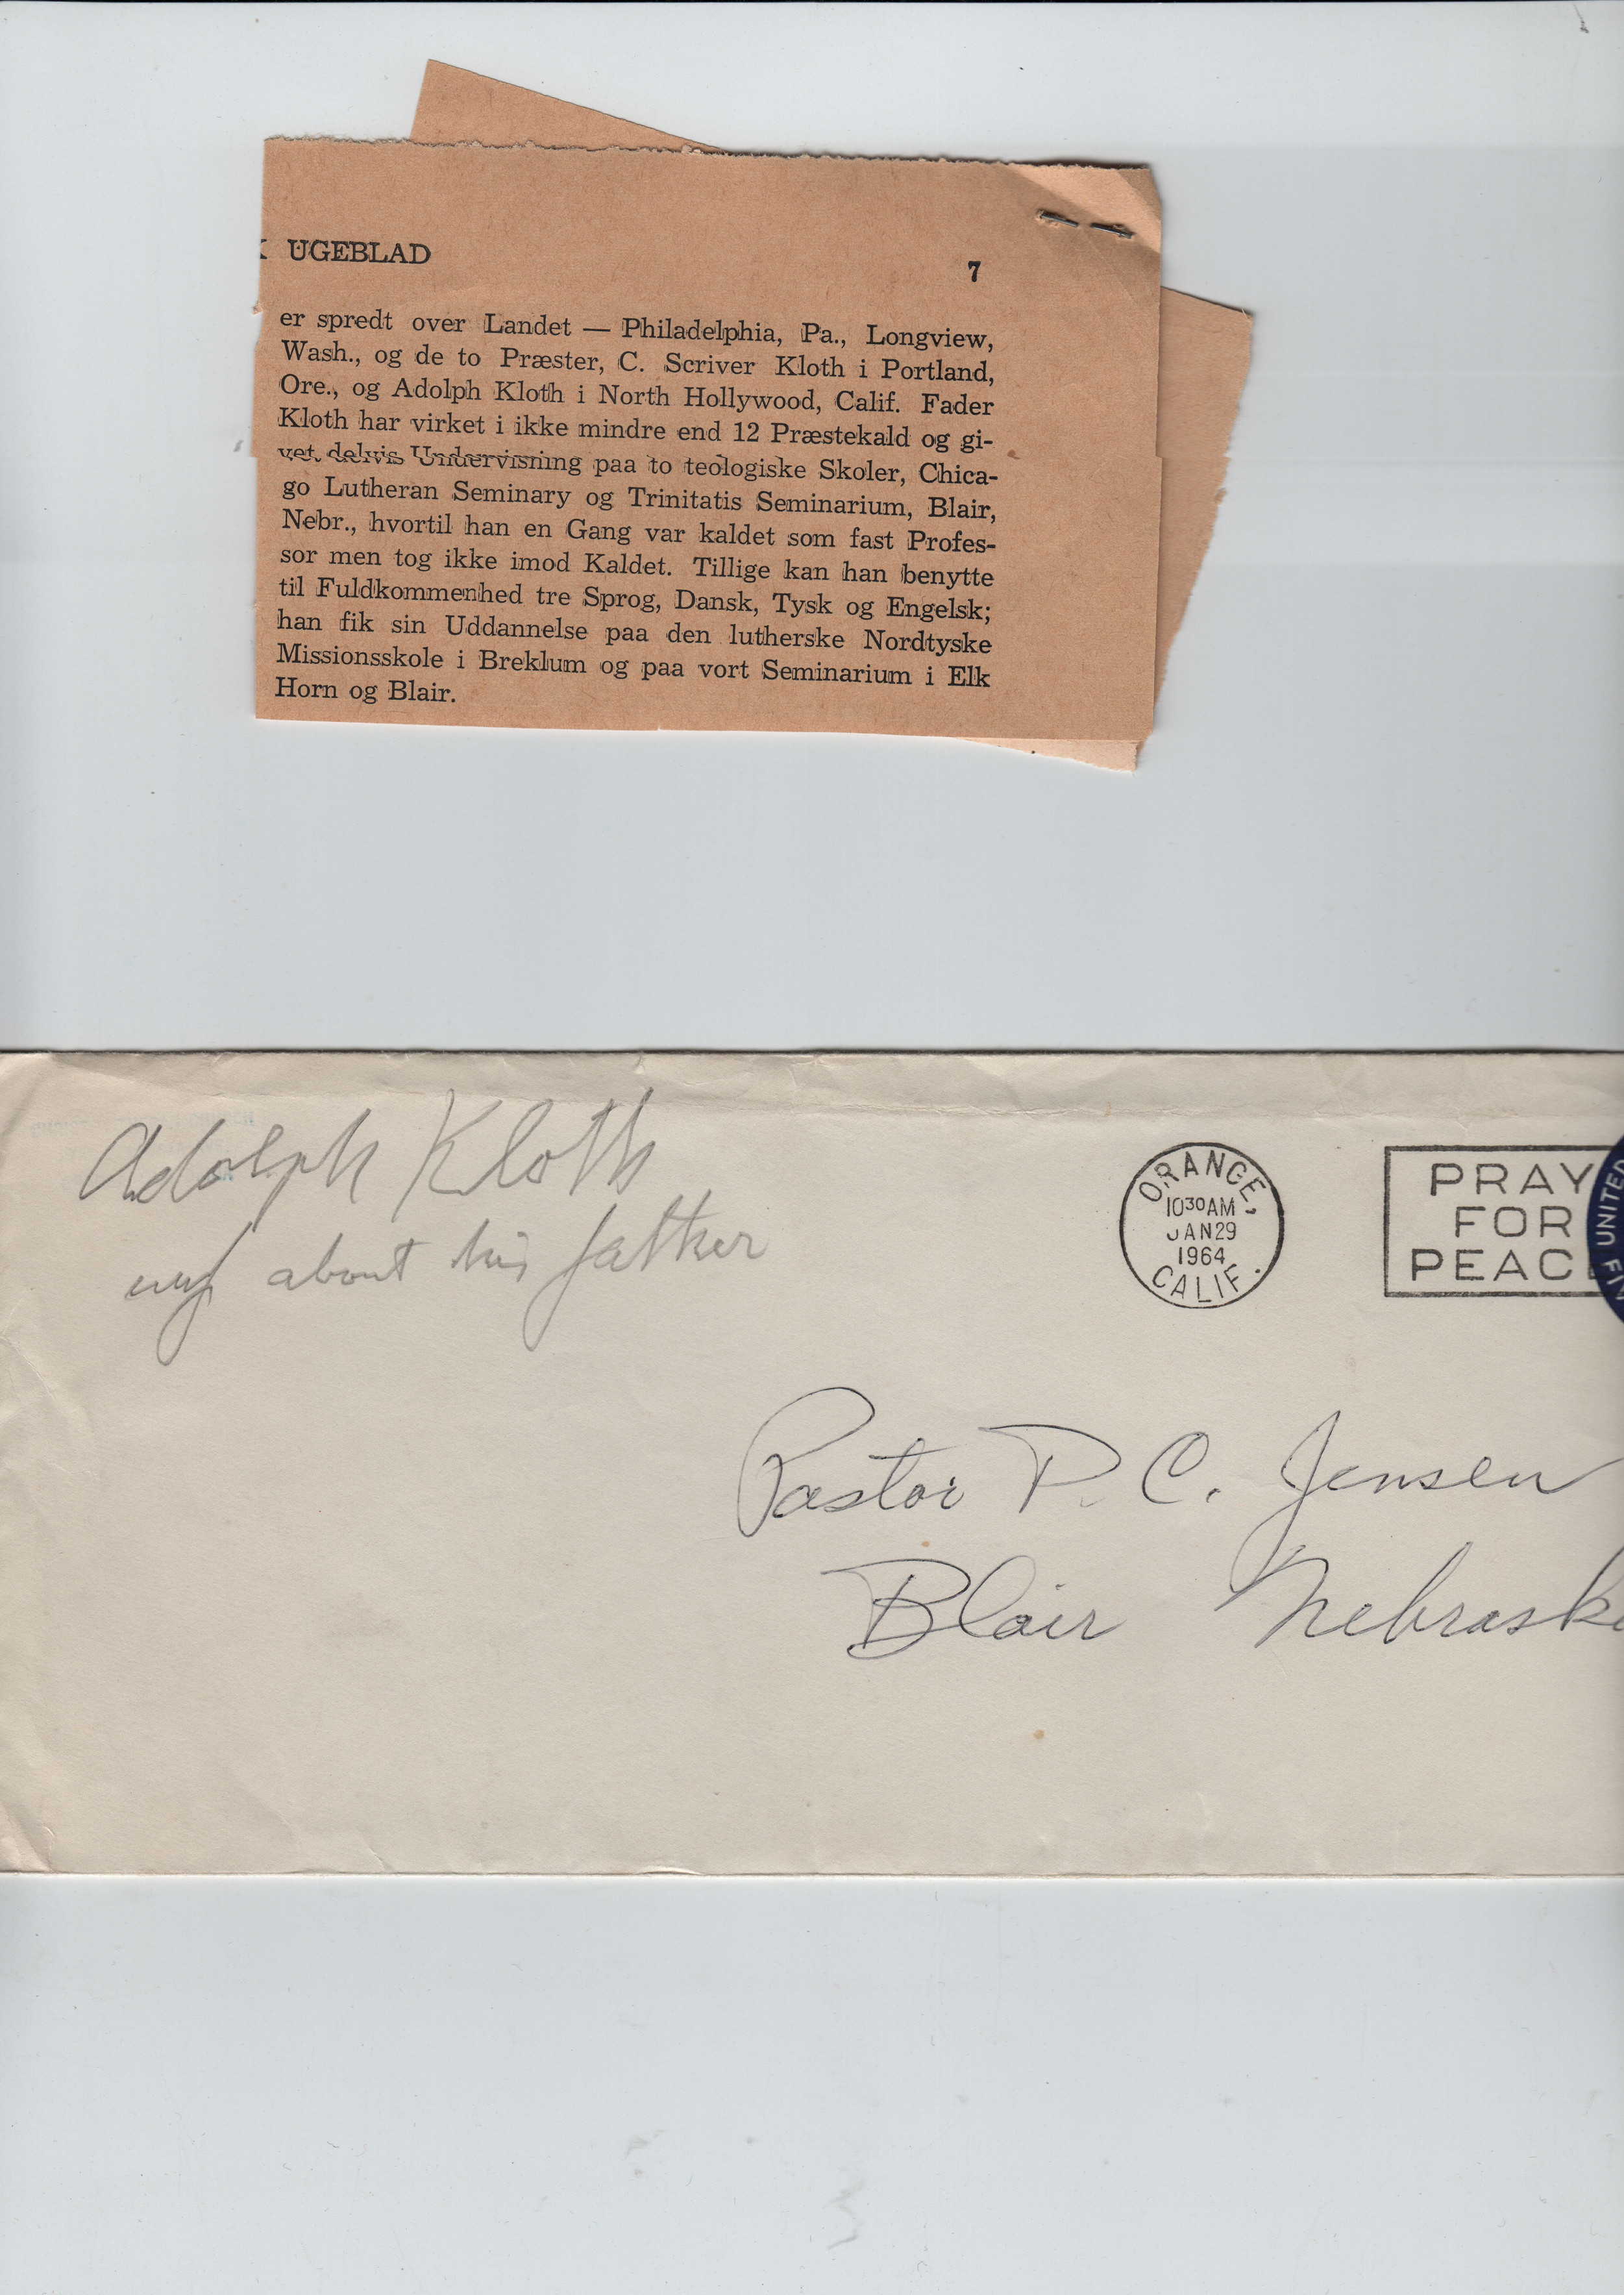 UGEBLAD 7
er spredt over Landet — Philadelphia, Pa., Longview,
Wash., og de to Præster, C. Scriver Kloth i Portland,
Ore., og Adolph Kloth i North Hollywood, Calif. Fader
Kloth har virket i ikke mindre end 12 Præstekald og gi-
vet delvis Undervisning paa to teologiske Skoler, Chica-
go Lutheran Seminary og Trinitatis Seminarium, Blair,
Nebr., hvortil han en Gang var kaldet som fast Profes-
sor men tog ikke imod Kaldet. Tillige kan han benytte
til Fuldkommenhed tre Sprog, Dansk, Tysk og Engelsk;
han fik sin Uddannelse paa den lutherske Nordtyske
Missionsskole i Breklum og paa vort Seminarium i Elk
Horn og Blair.
Adolph Kloth
about his father
ORANGE,
10 30 AM
JAN 29
1964
CALIF.
PRAY
FOR
PEACE
UNITED
Pastor P. C. Jensen
Blair Nebraska